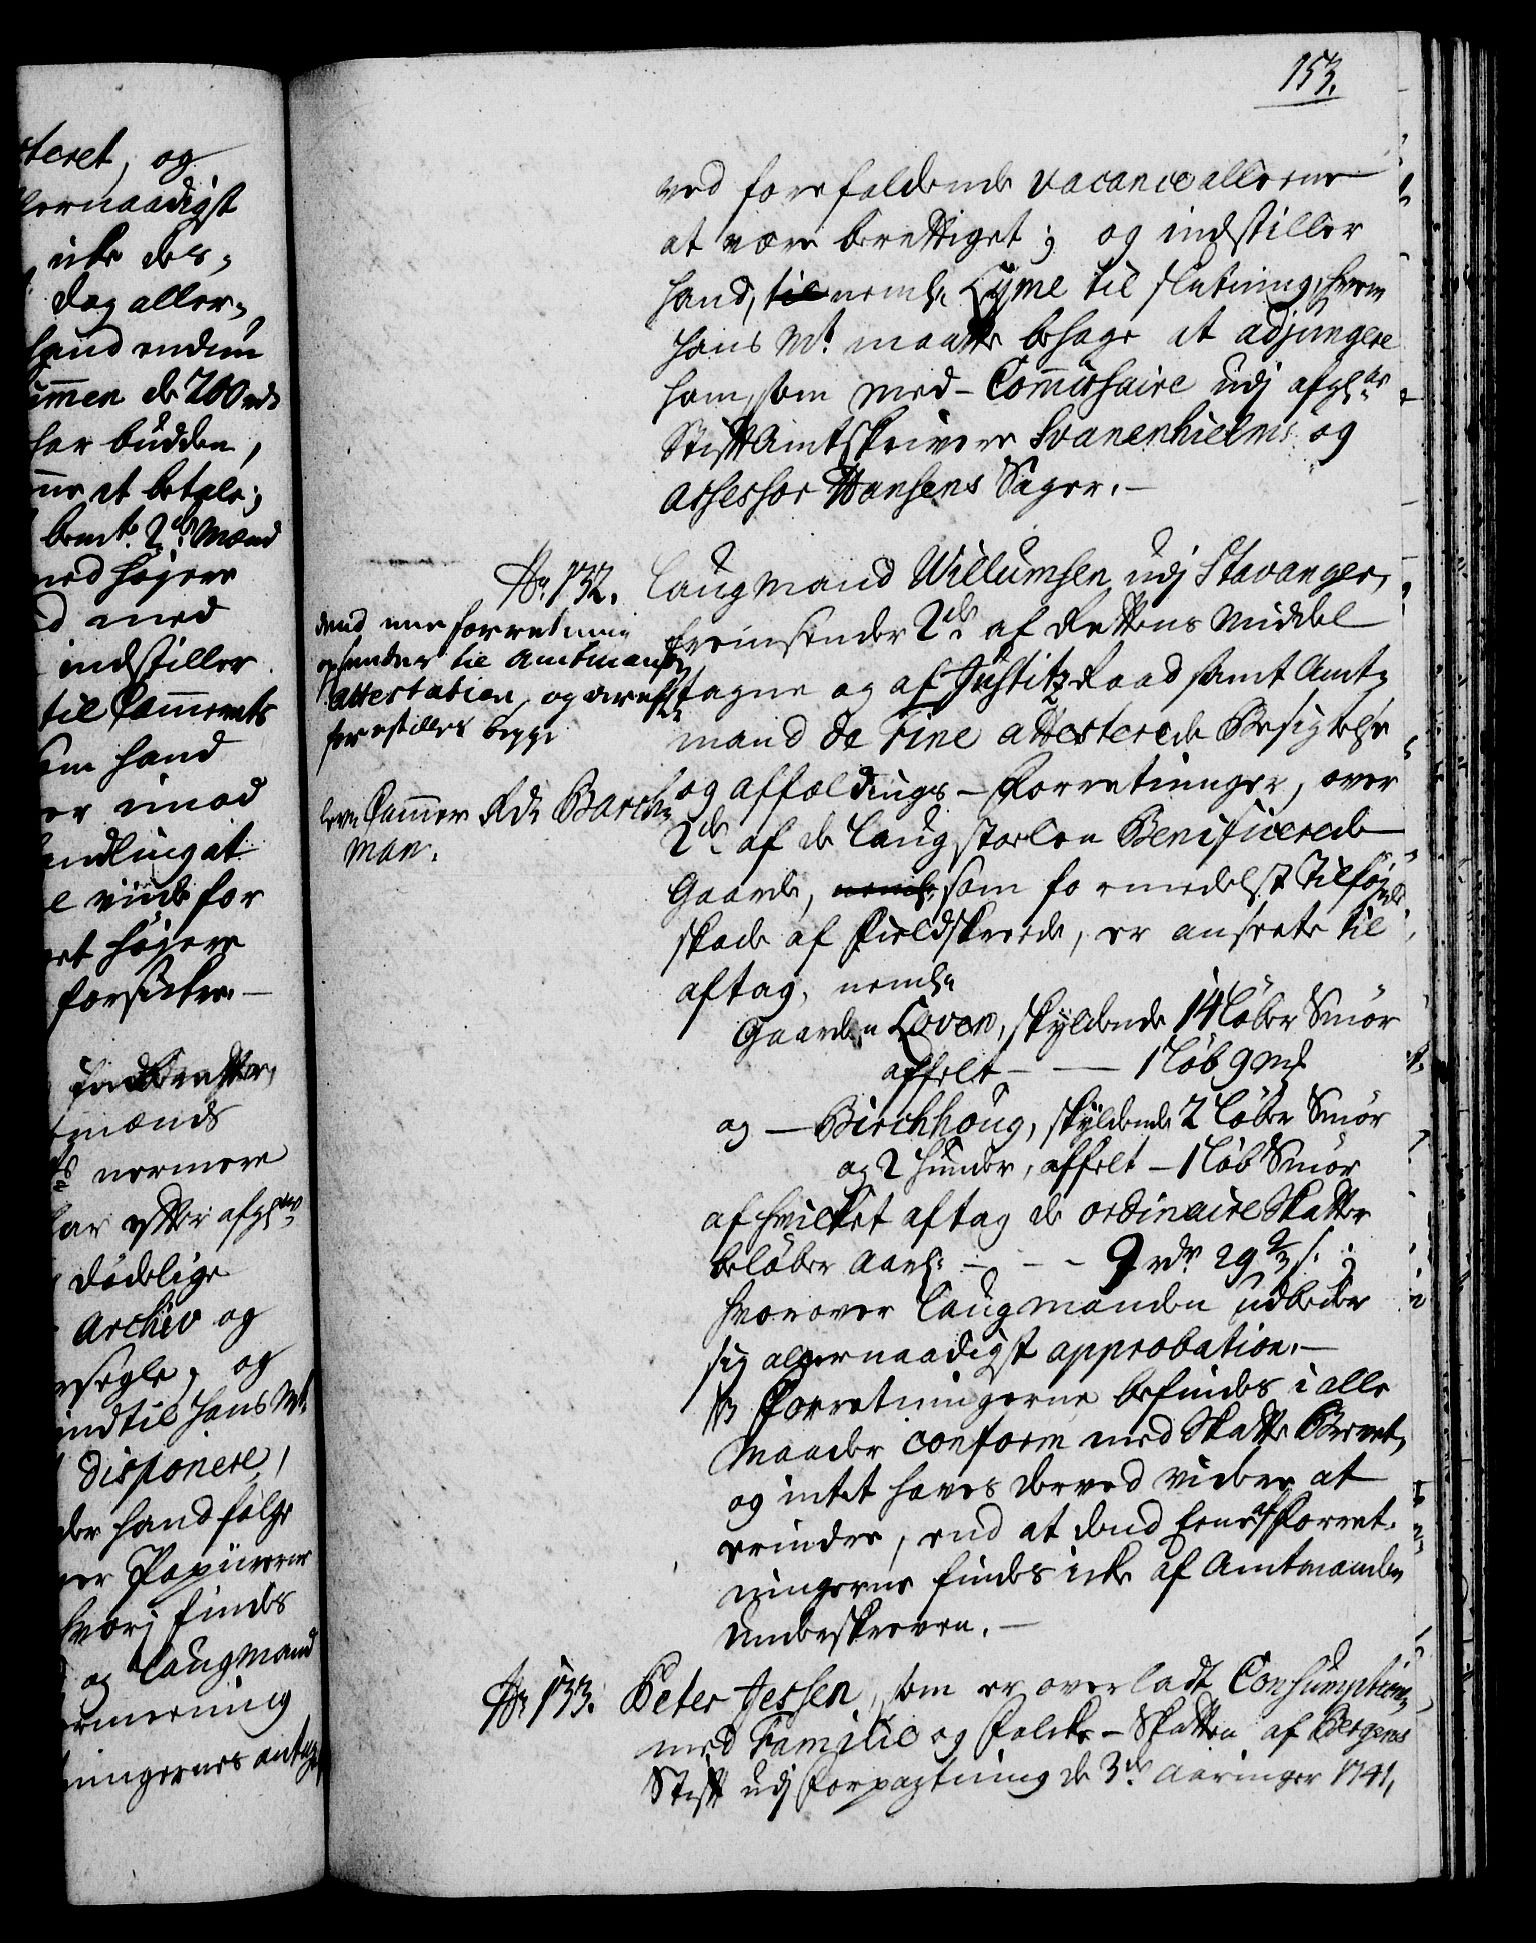 153.
ved forefaldende vacance alleene
at være berettiget; og indstiller
hand, til nemlig Lyme til slutning, hvem
Hans Mt. maatte behage at adjungere
ham, som med-Commissaire udj afgl:
Stiftamtskriver Svanenhielms og
Assessor Hansens Sager.-
No. 132.
Laugmand Willumsen udj Stavanger,
fremsender 2de af Rettens Middel
tagne og af Justitz Raad samt Amt-
mand de Fine attesterede Besigtelse
og affældings-Forretninger, over
2de af de Laugstoelen Beneficerede
Gaarde, nemlig som formedelst tilføyede
skade af Fieldskreede, er anseete til
aftag, nemlig
Gaarden Loven, skyldende 14 Løber Smør
affelt - - 1 Løb 9 mk
og - Birchhoug, skyldende 2 Løber Smør
og 2 Huuder, affelt - 1 Løb Smør
af hvilket aftag de ordinaire Skatter
beløber aarl: - - - 9 rdr 29 2/3 s. ;
hvorover Laugmanden udbeder
sig allernaadigst approbation.-
Forretningerne befindes i alle
Maader conform med Skatte Brevet,
og intet haves derved videre at
erindre, end at dend Eene af Forret-
ningerne findes icke af Amtmanden
Underskreven.-
dend eene forretning
sendes til Amtmandens
Attestation, og derefter
forestilles begge
lev: Cammer Rd: Barch-
man.
No. 133.
Peter Jessen, som er overladt Consumptionen
med Familie og Folcke-Skatten af Bergens
Stift udj Forpagtning de 3de Aaringer 1741,
teret, og
lernaadigst
icke des-
dog aller-
hand endnu
ummen de 700 rdr
har budden,
at betale;
bemte 2de Mænd
med høyere
med
indstiller
til Cammerets
som hand
er imod
andling at
vinde for
et høyere
forsickre.-
mænds
nermere
har efter afgl:
dødelige
Archiv og
segle, og
indtil Hans Mt.
disponere,
der hand følge
er Papiirerne
hvorj findes
og Laugmand
ningernes antag